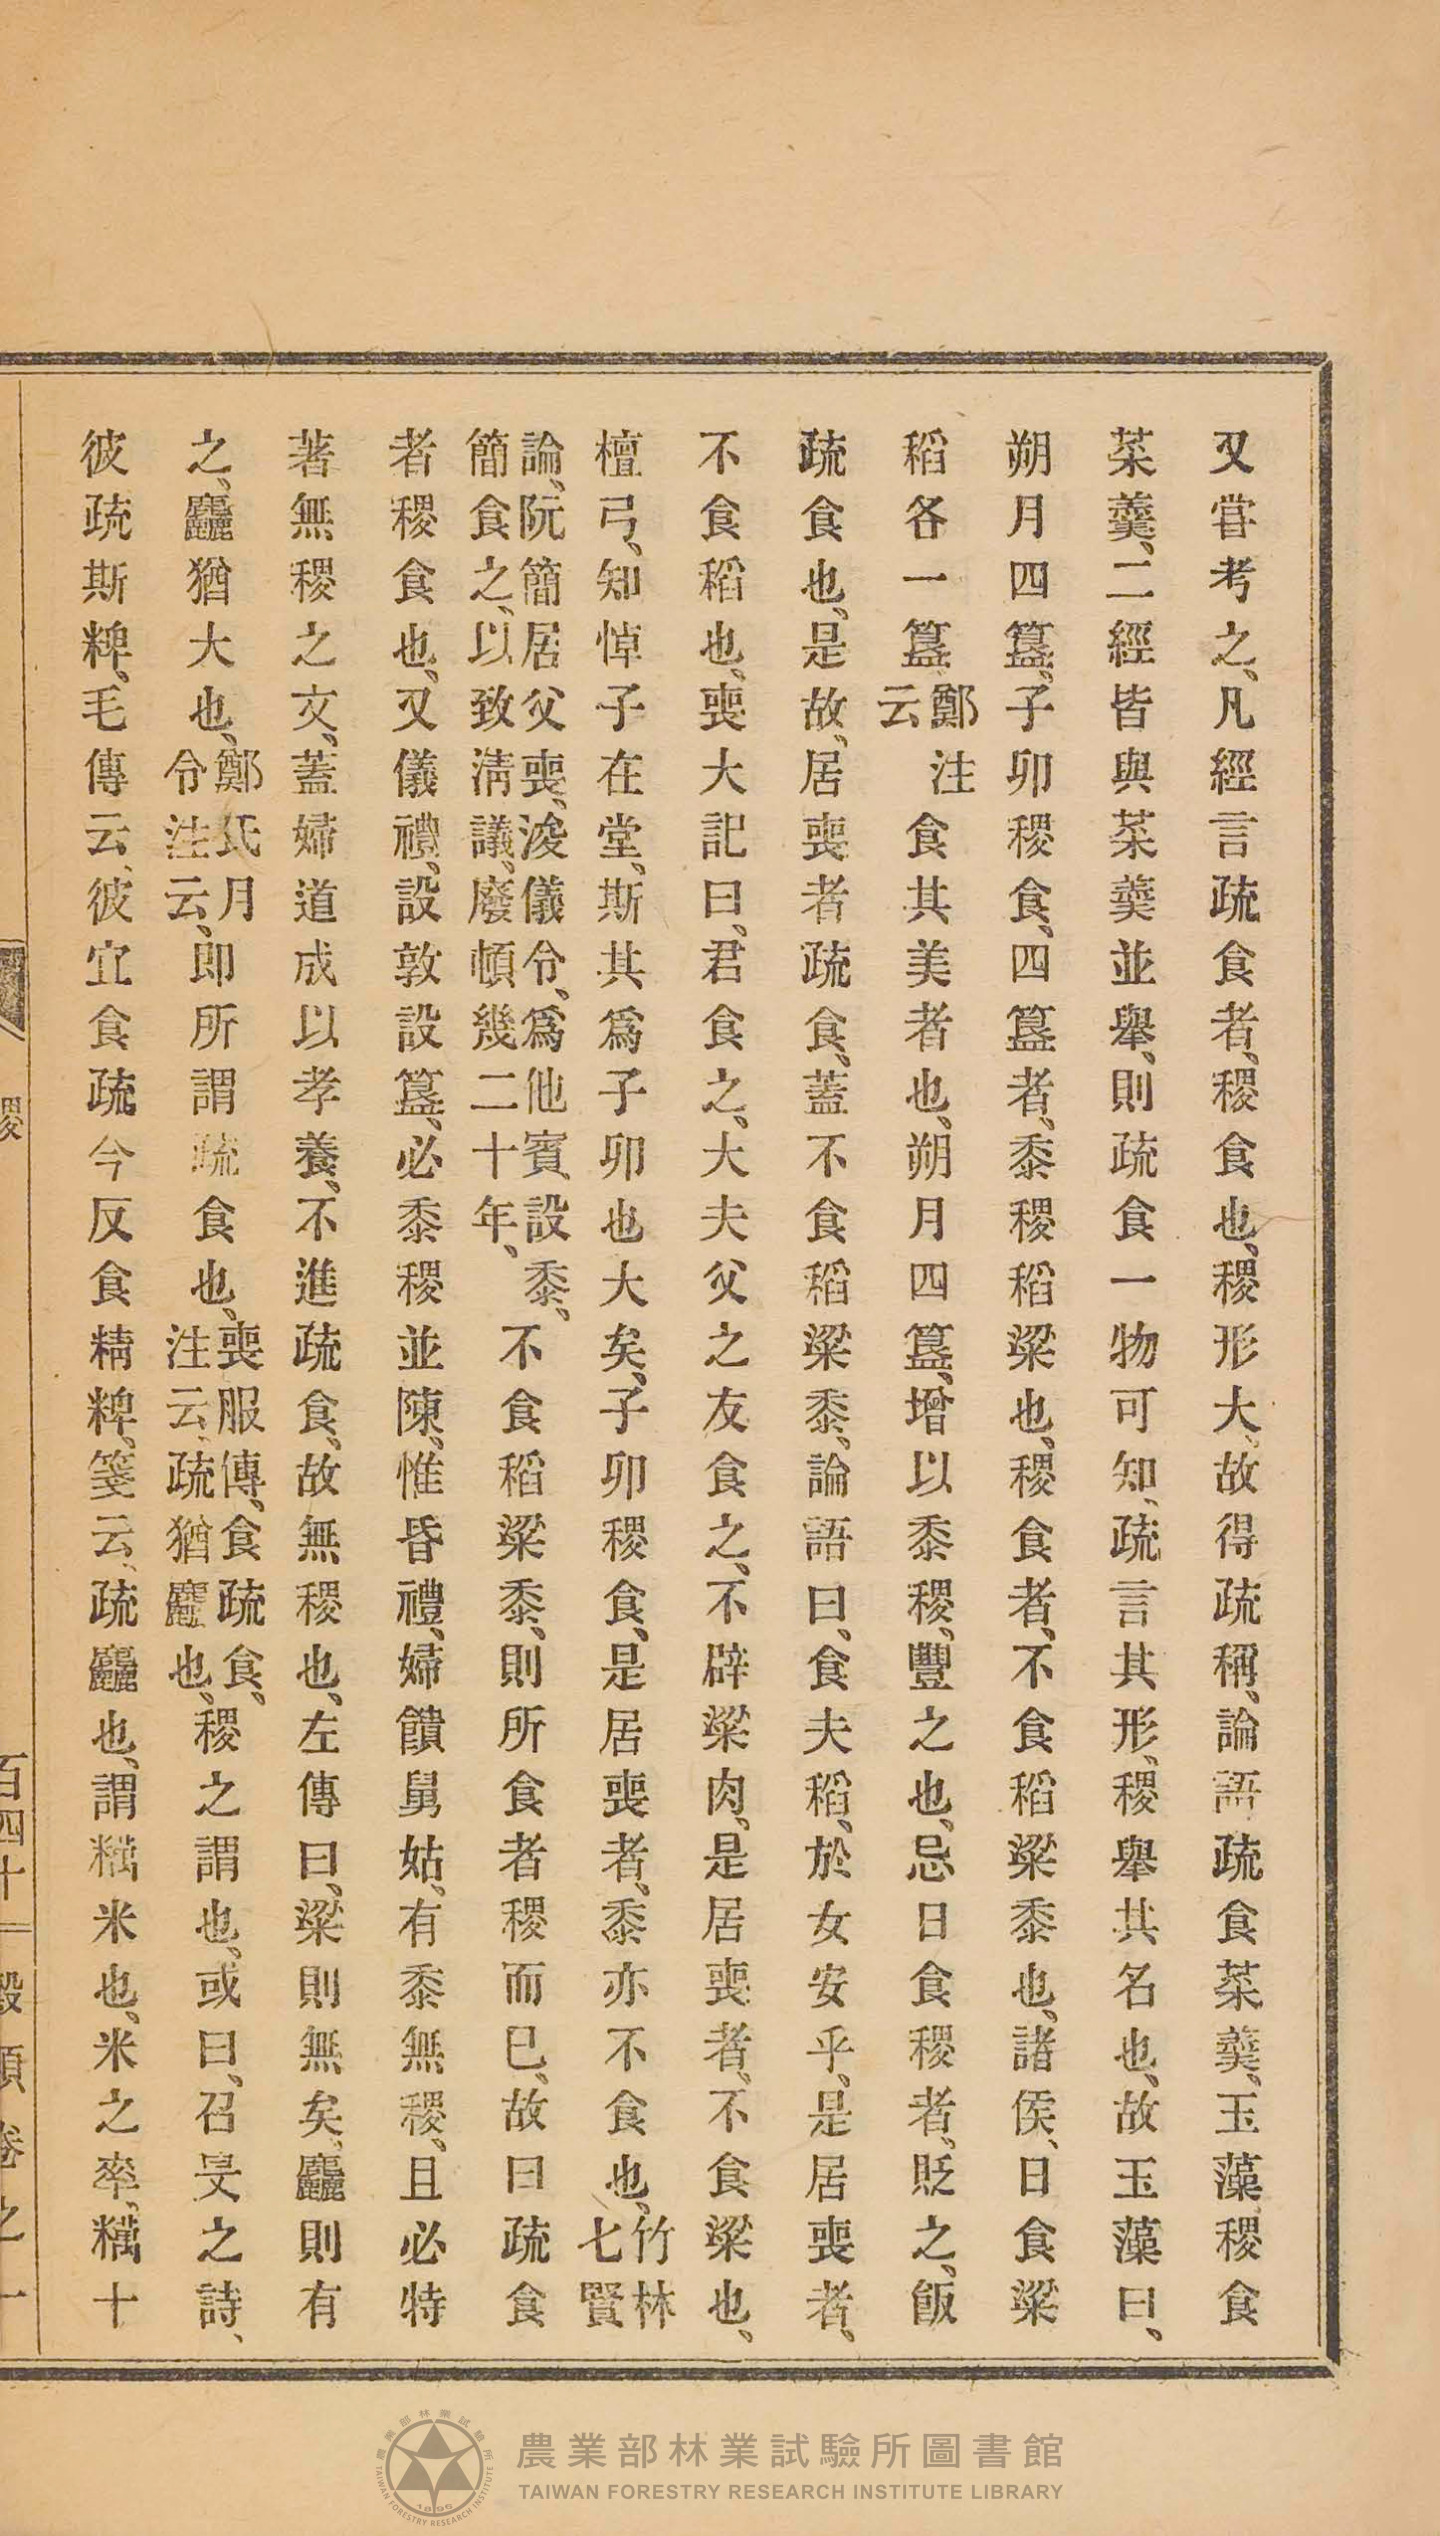 又嘗考之、凡經言疏食者、稷食也、稷形大、故得疏稱、論語疏食菜羹、玉藻稷食
菜羹、二經皆與菜羹並舉、則疏食一物可知、疏言其形、稷舉其名也、故玉藻曰、
朔月四簋、子卯稷食、四簋者、黍稷稻粱也、稷食者、不食稻粱黍也、諸侯、日食粱
稻各一簋、鄭注云食其美者也、朔月四簋、增以黍稷、豐之也、忌日食稷者、貶之、飯
疏食也、是故、居喪者疏食、蓋不食稻粱黍、論語曰、食夫稻、於女安乎、是居喪者、
不食稻也、喪大記曰、君食之、大夫父之友食之、不辟粱肉、是居喪者、不食粱也、
檀弓、知悼子在堂、斯其爲子卯也大矣、子卯稷食、是居喪者、黍亦不食也、竹林七賢
論、阮簡居父喪、浚儀令、爲他賓設黍、簡食之、以致淸議、廢頓幾二十年、不食稻粱黍、則所食者稷而巳、故曰疏食
者稷食也、又儀禮、設敦設簋、必黍稷並陳、惟昏禮、婦饋舅姑、有黍無稷、且必特
著無稷之文、蓋婦道成以孝養、不進疏食、故無稷也、左傳曰、粱則無矣、麤則有
之、麤猶大也、鄭氏月令注云、卽所謂疏食也、喪服傳、食疏食、注云、疏猶麤也、稷之謂也、或曰、召旻之詩、
彼疏斯粺、毛傳云、彼宜食疏今反食精粺、箋云、疏麤也、謂糲米也、米之率、糲十
稷
百四十二
穀類卷之一
農業部林業試驗所圖書館
TAIWAN FORESTRY RESEARCH INSTITUTE LIBRARY
農業部林業試驗所
TAIWAN FORESTRY RESEARCH INSTITUTE
1895